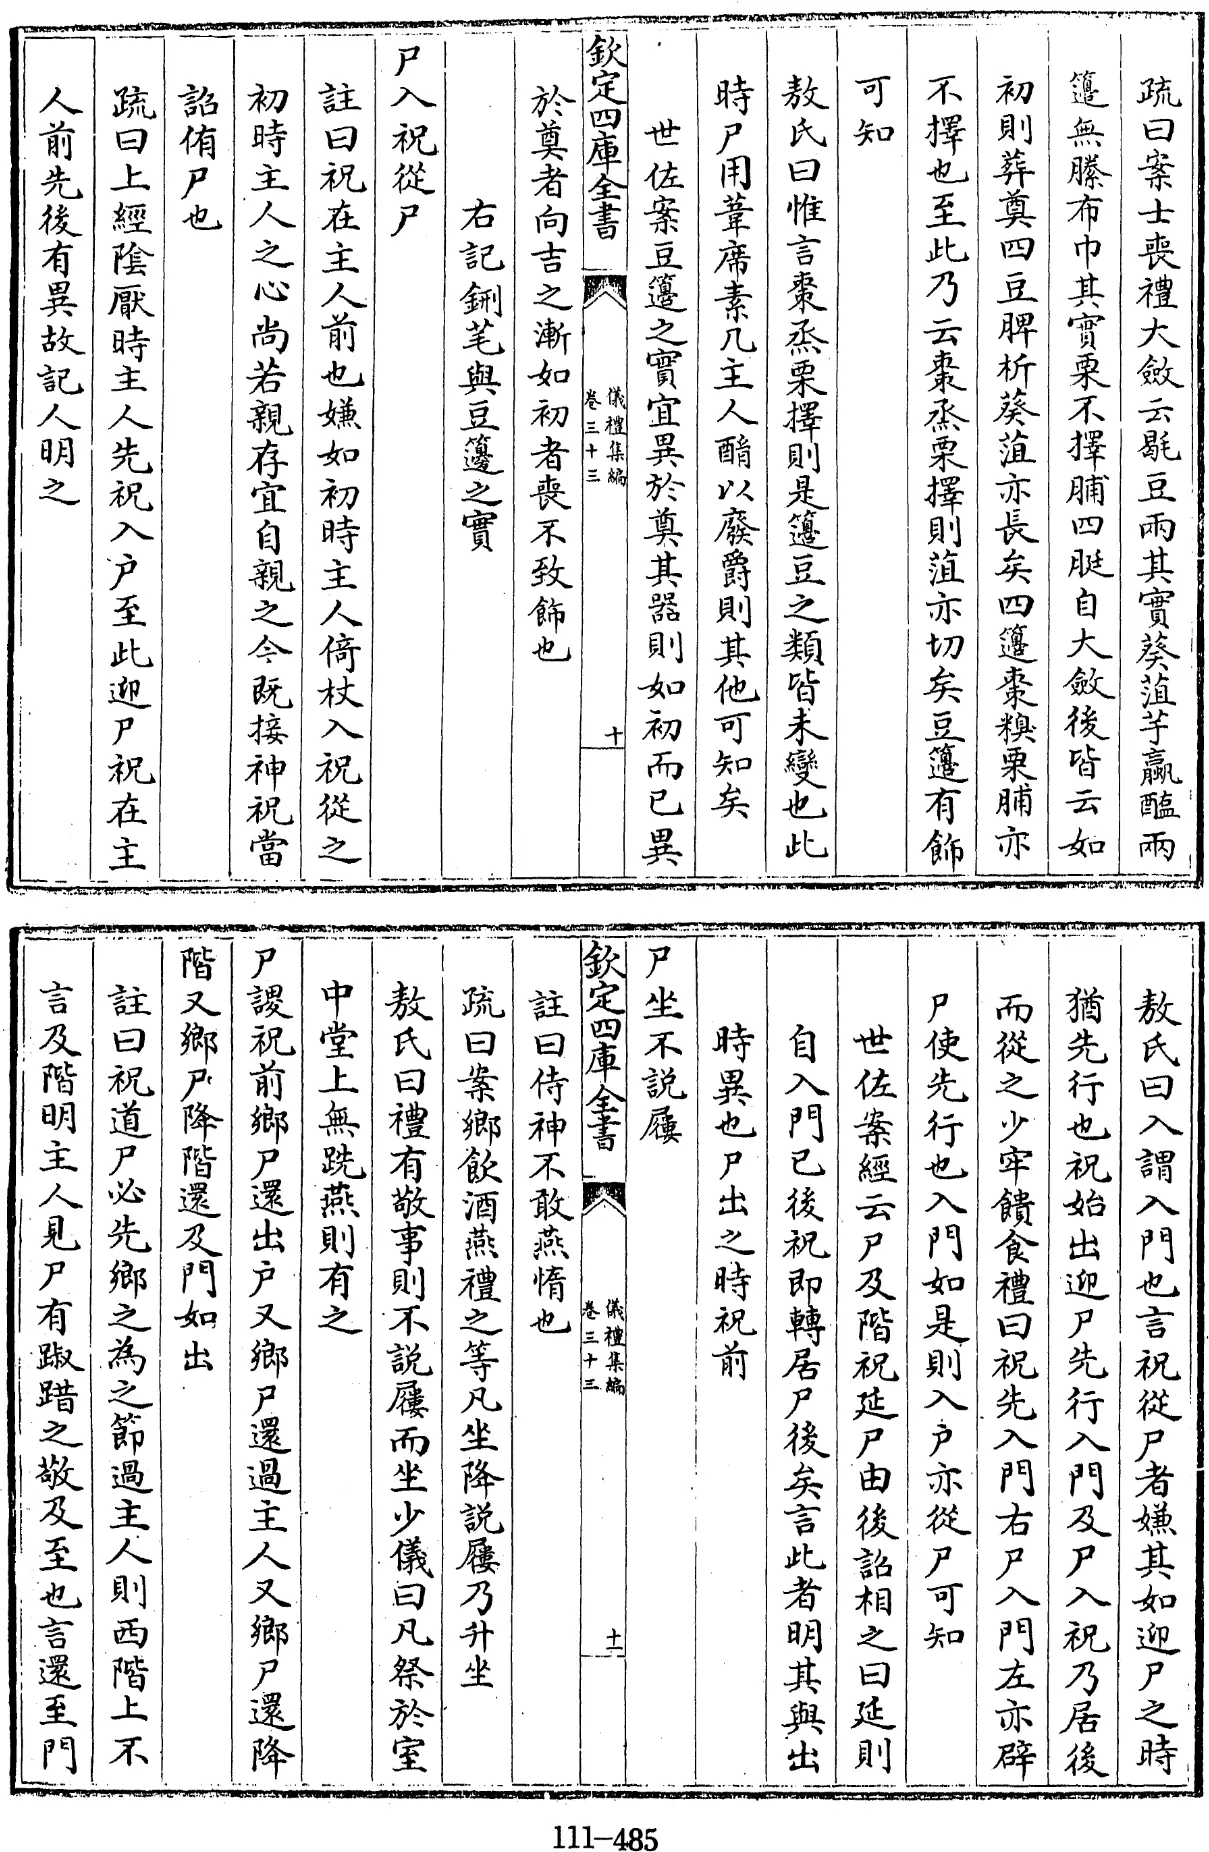 疏曰案士喪禮大斂云毼豆兩其實葵菹芋蠃醢兩
籩無縢布巾其實栗不擇脯四脡自大斂後皆云如
初則葬奠四豆脾析葵菹亦長矣四籩棗糗栗脯亦
不擇也至此乃云棗烝栗擇則菹亦切矣豆籩有飾
可知
敖氏曰惟言棗烝栗擇則是籩豆之類皆未變也此
時尸用葦席素几主人酳以廢爵則其他可知矣
世佐案豆籩之實宜異於奠其器則如初而已異
欽定四庫全書
儀禮集編
卷三十三
十
於奠者向吉之漸如初者喪不致飾也
右記鉶芼與豆籩之實
尸入祝從尸
註曰祝在主人前也嫌如初時主人倚杖入祝從之
初時主人之心尚若親存宜自親之今既接神祝當
詔侑尸也
疏曰上經陰厭時主人先祝入户至此迎尸祝在主
人前先後有異故記人明之
敖氏曰入謂入門也言祝從尸者嫌其如迎尸之時
猶先行也祝始出迎尸先行入門及尸入祝乃居後
而從之少牢饋食禮曰祝先入門右尸入門左亦辟
尸使先行也入門如是則入户亦從尸可知
世佐案經云尸及階祝延尸由後詔相之曰延則
自入門已後祝即轉居尸後矣言此者明其與出
時異也尸出之時祝前
尸坐不説屨
欽定四庫全書
儀禮集編
卷三十三
十一
註曰侍神不敢燕惰也
疏曰案鄉飲酒燕禮之等凡坐降説屨乃升坐
敖氏曰禮有敬事則不説屨而坐少儀曰凡祭於室
中堂上無跣燕則有之
尸謖祝前鄉尸還出户又鄉尸還過主人又鄉尸還降
階又鄉尸降階還及門如出
註曰祝道尸必先鄉之為之節過主人則西階上不
言及階明主人見尸有踧踖之敬及至也言還至門
111-485